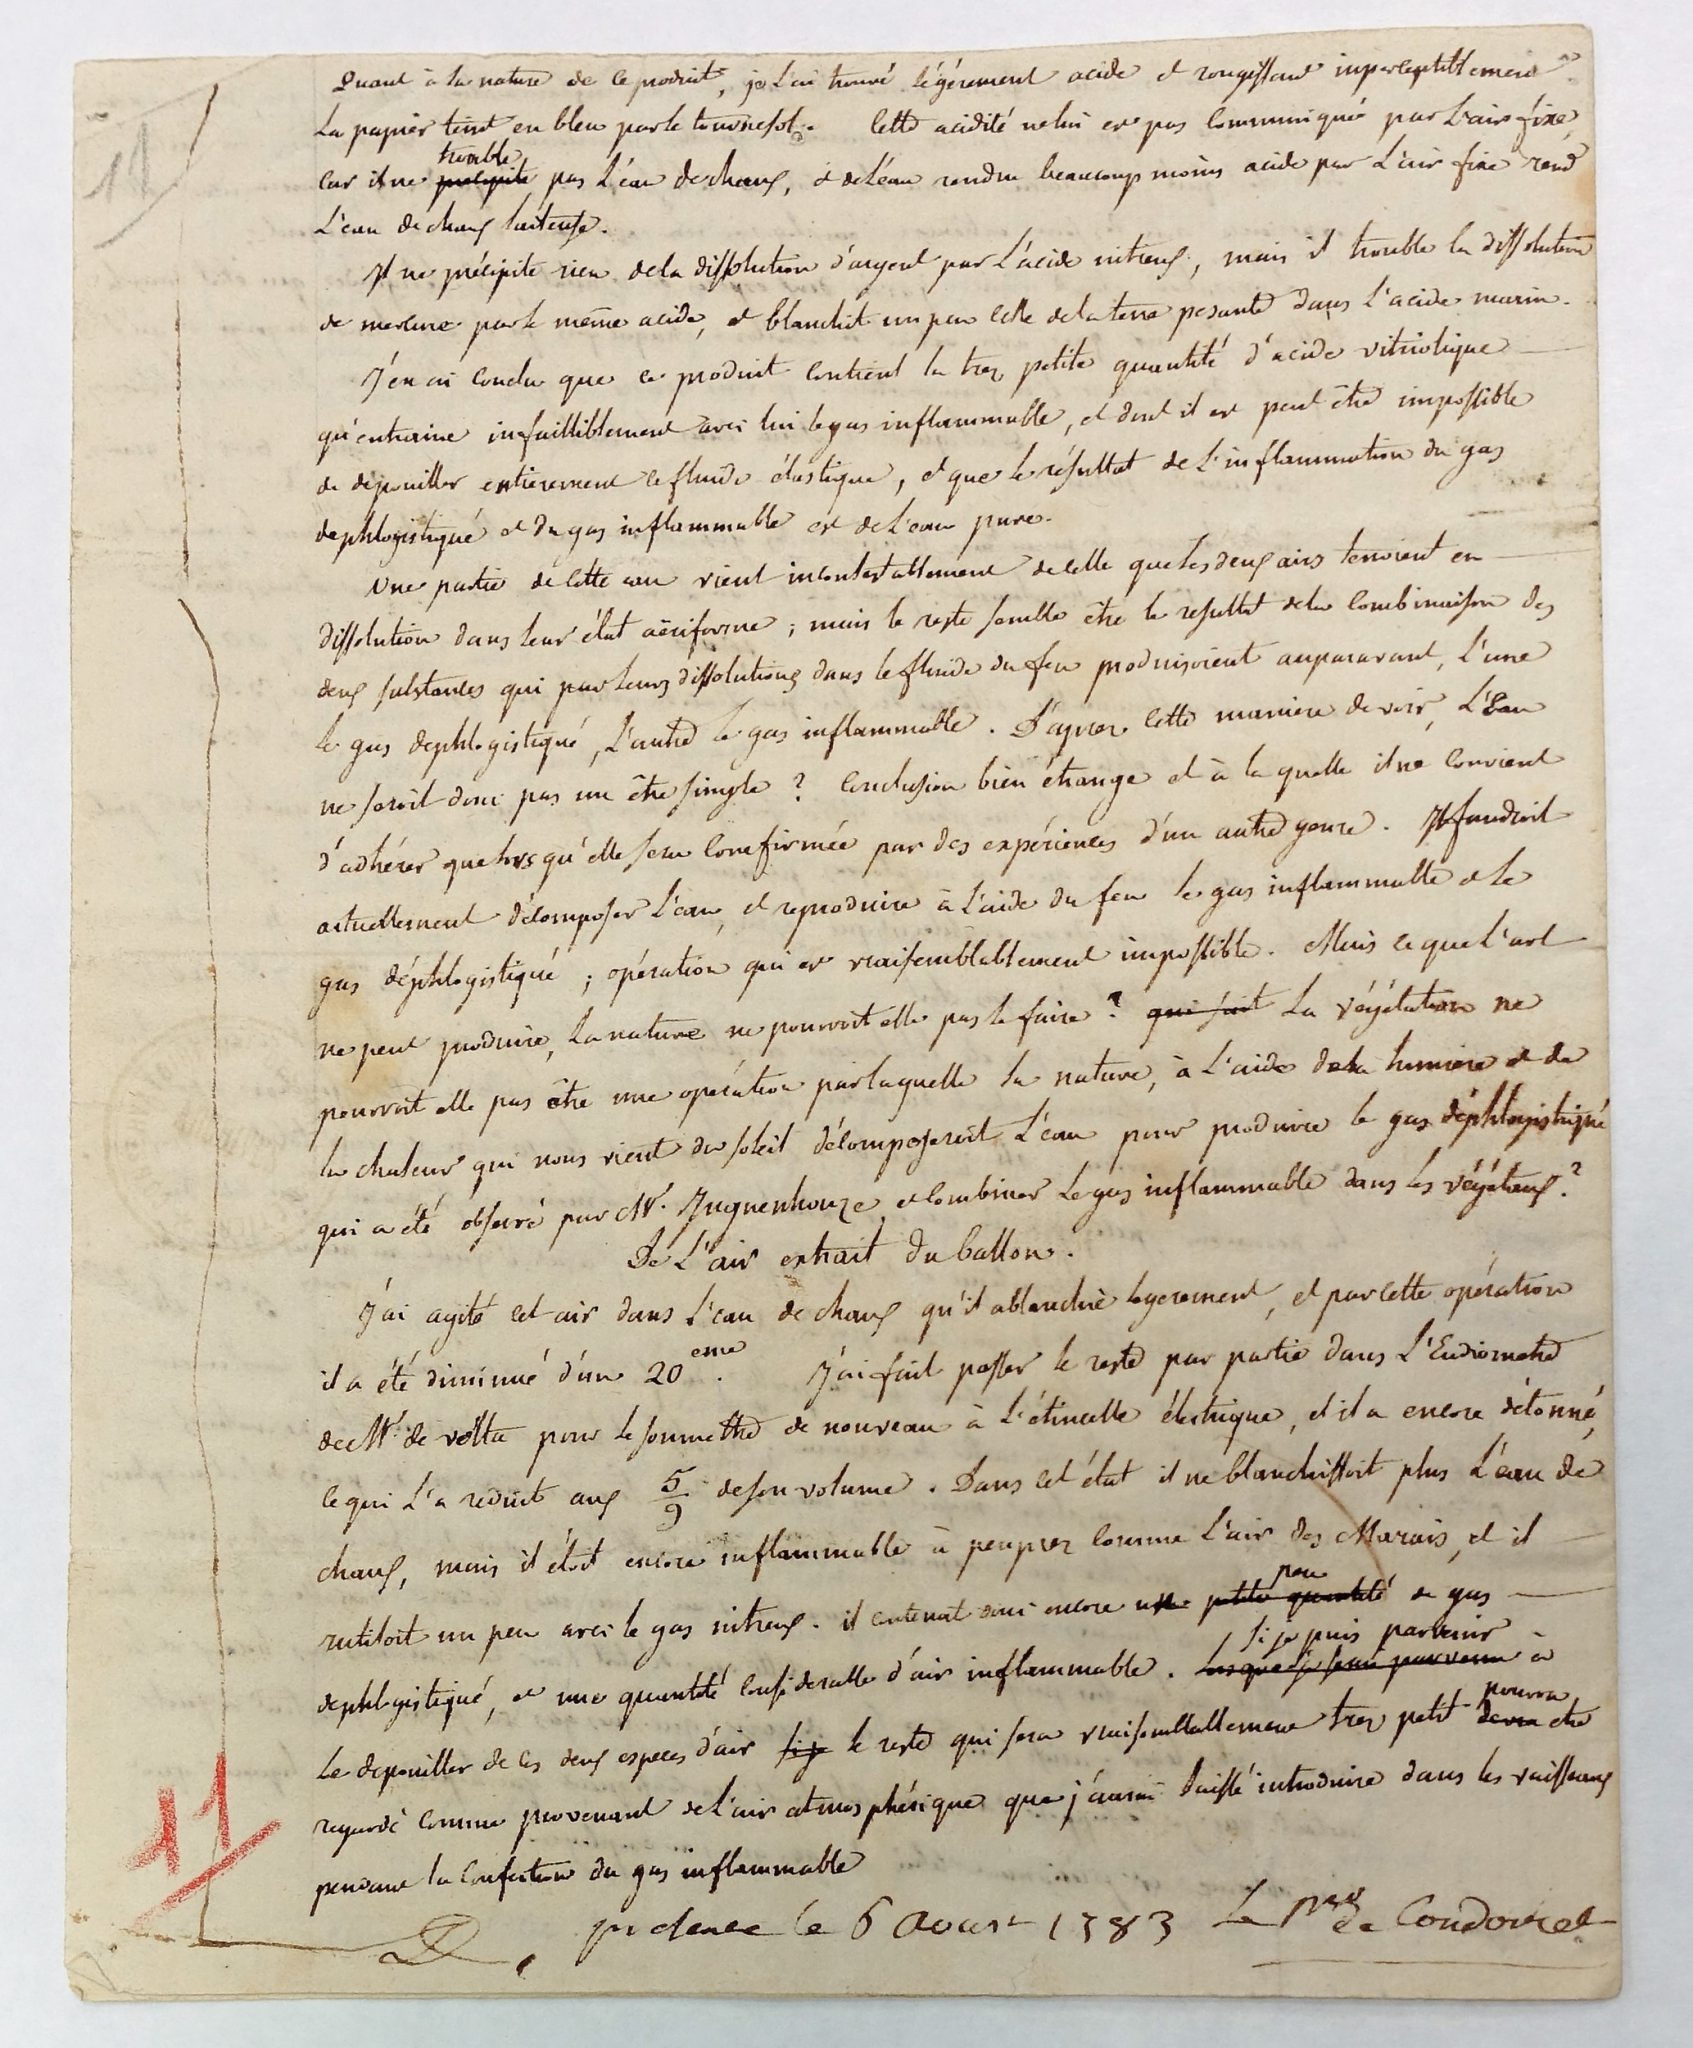 11
Quant à la nature de ce produit, je l'ai trouvé légérement acide et rougissant imperceptiblement
le papier teint en bleu par le tournesol. Cette acidité ne lui est pas communiqué par l'air fixe,
trouble
car il ne precipite pas l'eau de chaux, et de l'eau rendue beaucoup moins acide par l'air fixe rend
l'eau de chaux laiteuse.
Il ne précipite rien de la dissolution d'argent par l'acide nitreux, mais il trouble la dissolution
de mercure par le même acide, et blanchit un peu celle de la terre pesante dans l'acide marin.
J'en ai conclu que ce produit contient la trez petite quantité d'acide vitriolique
qu'entraine infailliblement avec lui le gas inflammable, et dont il est peut être impossible
de depouiller entierement ce fluide élastique, et que le résultat de l'inflammation du gas
dephlogistiqué et du gas inflammable est de l'eau pure.
Une partie de cette eau vient incontestablement de celle que les deux airs tenoient en
dissolution dans leur état aëriforme ; mais le reste semble être le resultat de la combinaison des
deux substances qui par leurs dissolutions dans le fluide du feu produisoient auparavant, l'une
le gas dephlogistiqué, l'autre le gas inflammable. D'aprez cette maniere de voir, l'Eau
ne seroit donc pas un être simple ? Conclusion bien étrange et à la quelle il ne convient
d'adhérer que lorsqu'elle sera confirmée par des expériences d'un autre genre. Il faudroit
actuellement décomposer l'eau, et reproduire à l'aide du feu le gas inflammable et le
gas déphlogistiqué ; opération qui est vraisemblablement impossible. Mais ce que l'art
ne peut produire, la nature ne pourroit elle pas le faire ? qui sait La végétation ne
pourroit elle pas être une opération par laquelle la nature, à l'aide de la lumiere et de
la chaleur qui nous vient du soleil décomposeroit l'eau pour produire le gas déphlogistiqué
qui a été observé par Mr. Jngnenhouze, et combiner le gas inflammable dans les végétaux ?
De l'air extrait du ballon.
J'ai agité cet air dans l'eau de chaux qu'il a blanchie legerement, et par cette opération
il a été diminué d'un 20eme. J'ai fait passer le reste par partie dans l'Eudiometre
de Mr. de volta pour le soumettre de nouveau à l'étincelle électrique, et il a encore détonné,
ce qui l'a reduit aux 5/9 de son volume. Dans cet état il ne blanchissoit plus l'eau de
chaux, mais il étoit encore inflammable à peuprez comme l'air des Marais, et il
peu
rutiloit un peu avec le gas nitreux. il contenoit donc encore une petite quantité de gas
si je puis parvenir
dephlogistiqué, et une quantité considerable d'air inflammable. Lorsque je serai parvenu à
pourra
le depouiller de ces deux especes d'air si je le reste qui sera vraisemblablement trez petit devra etre
regardé comme provenant de l'air atmosphérique que j'aurai laissé introduire dans les vaisseaux
pendant la confection du gas inflammable
11
le 6 Aoust 1783 Le Mis de Condorcet